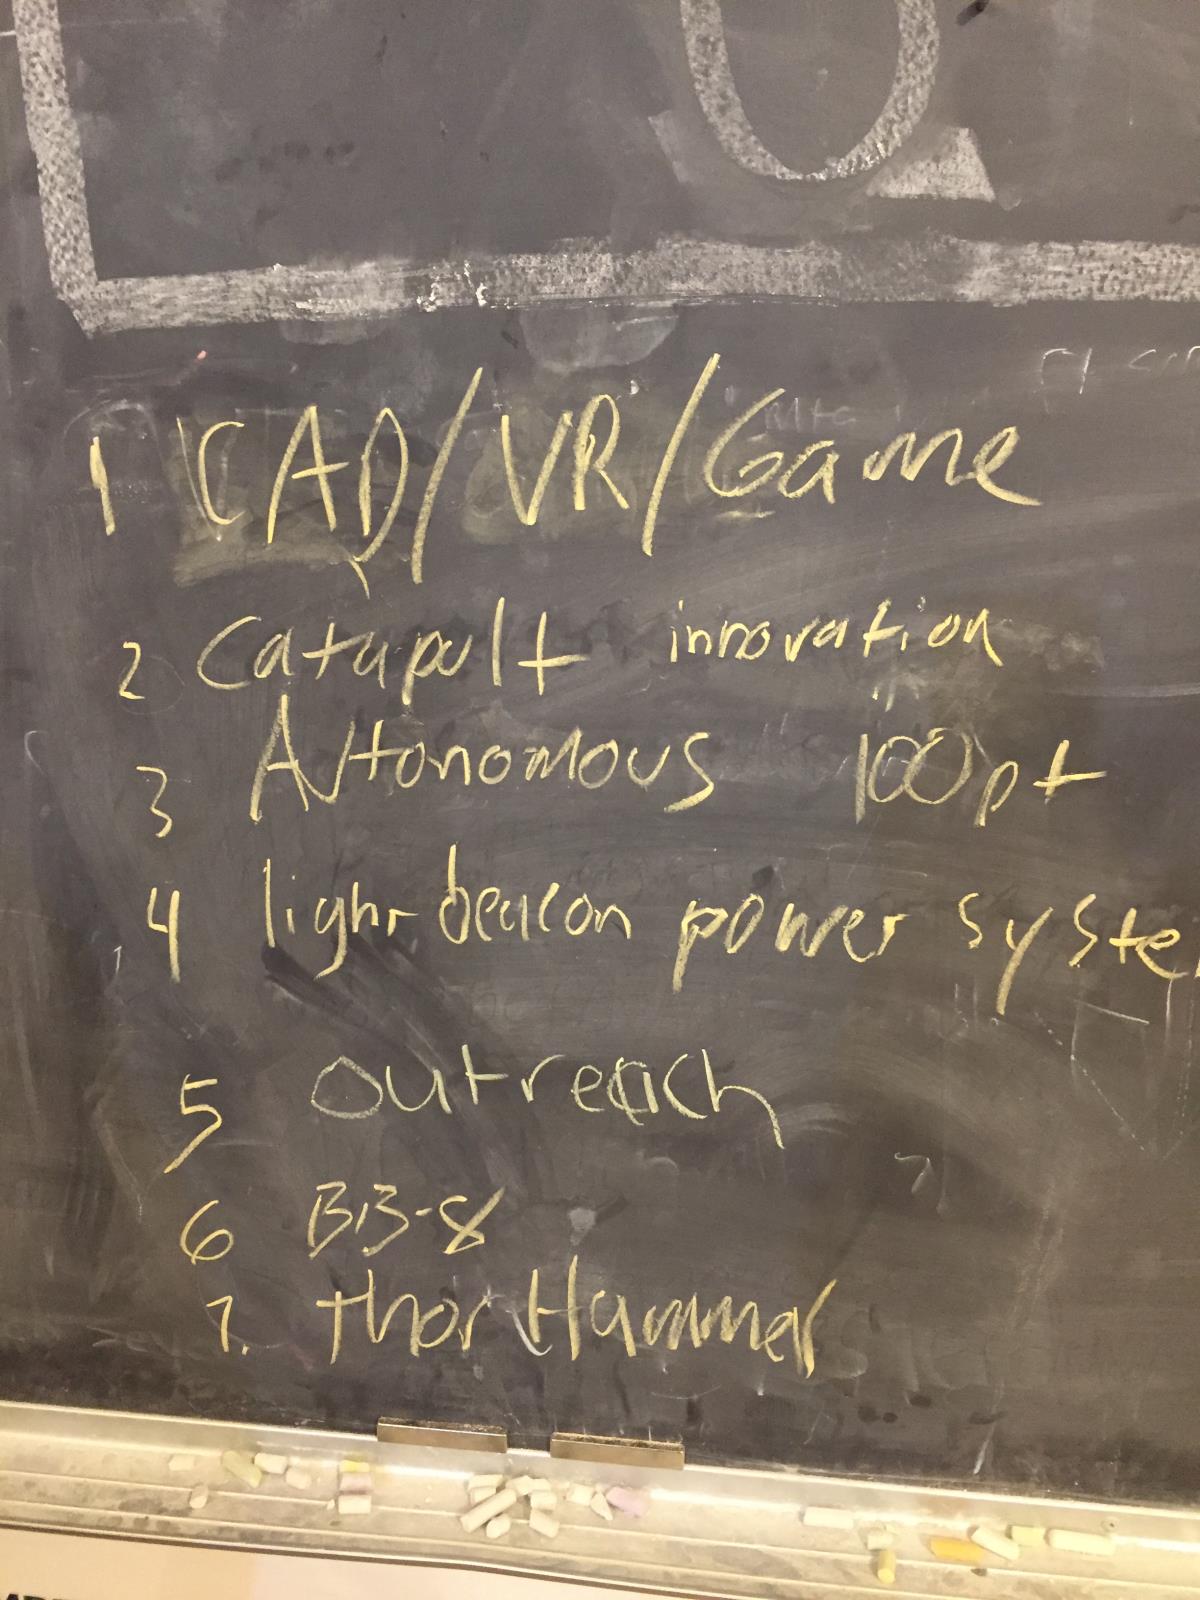 1 CAD/VR/Game
2 Catapult innovation
3 Autonomous 100pt
4 light beacon power syste
5 outreach
6 BB-8
7. thor Hammer